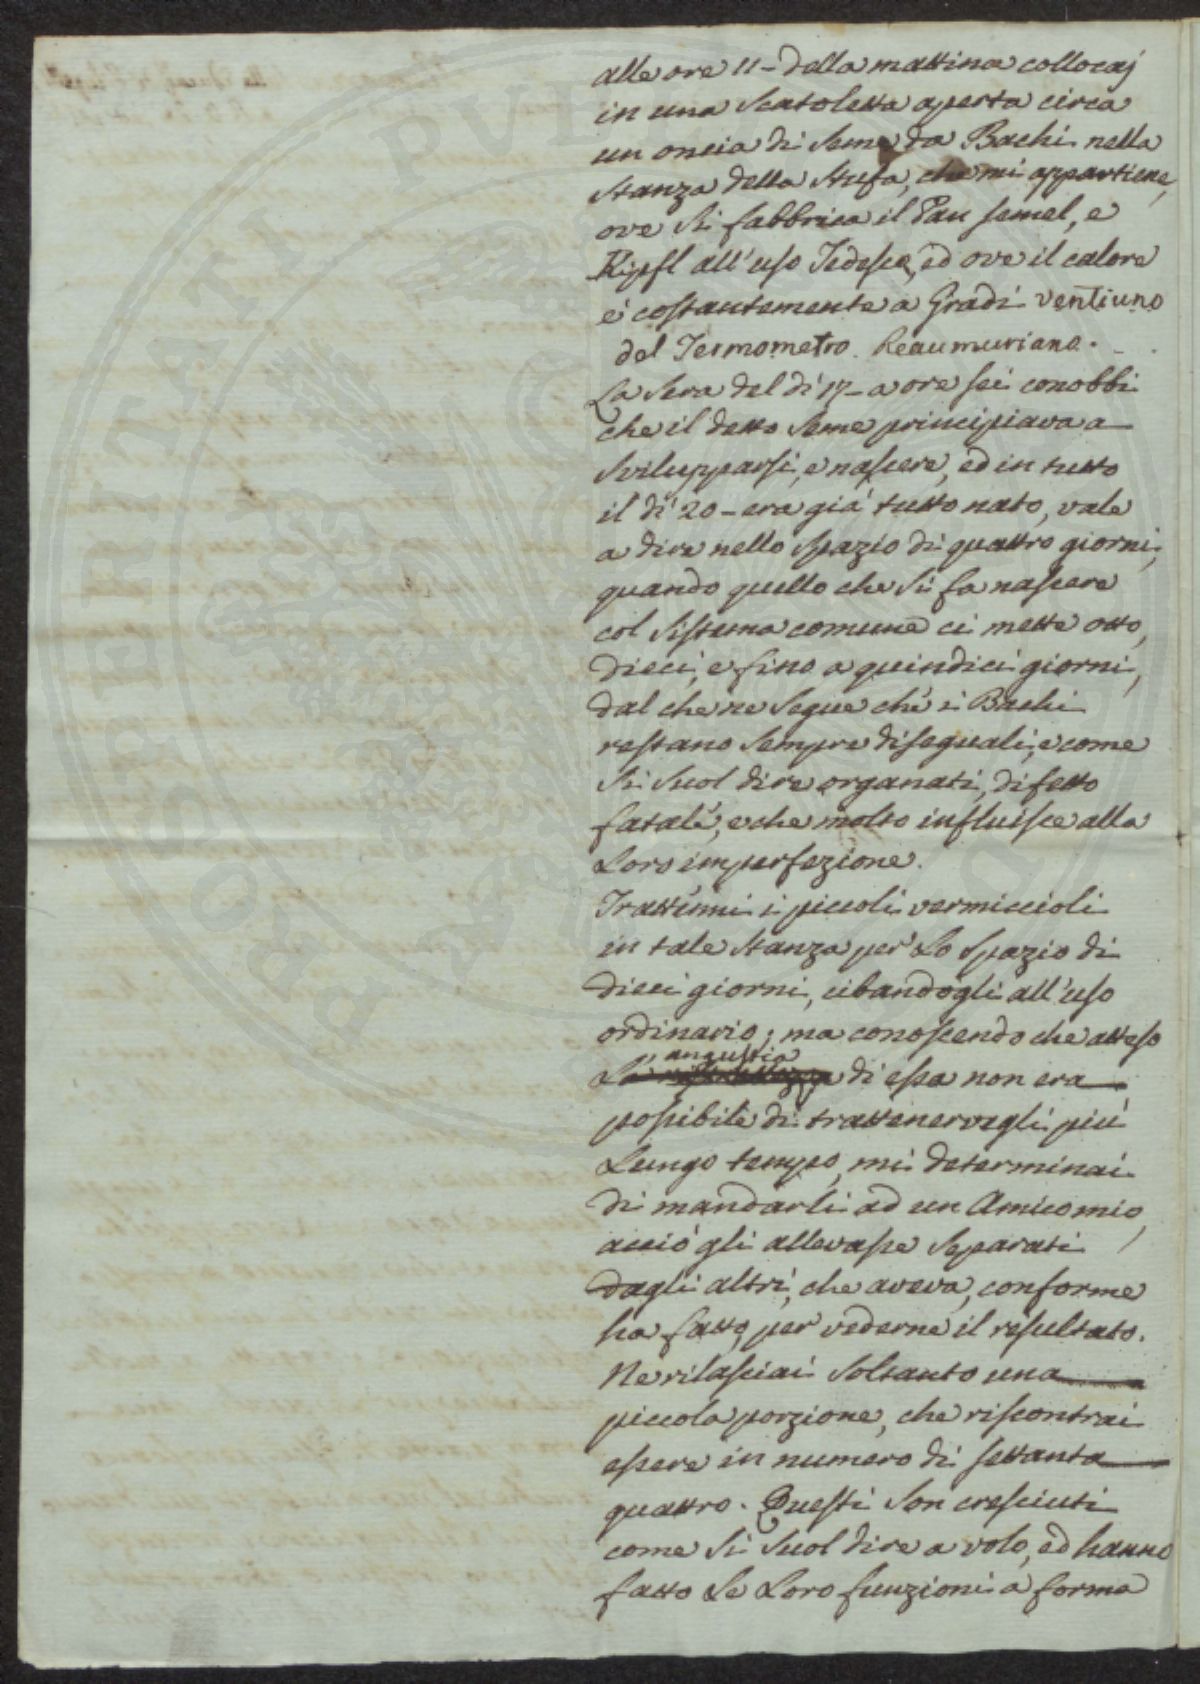 alle ore 11 - della mattina collocaj
in una Scatoletta aperta circa
un oncia di Seme da Bachi nella
Stanza della Stufa, che mi appartiene,
ove Si fabbrica il Pan Semel, e
Kipfl all'uso Tedesco, ed ove il calore
e' costantemente a Gradi ventiuno
del Termometro Reaumuriano.
La Sera del dì 17 - a ore sei conobbi
che il detto Seme principiava a
Svilupparsi, e nascere, ed in tutto
il dì 20 - era già tutto nato, vale
a dire nello Spazio di quattro giorni,
quando quello che Si fa nascere
col Sistema comune ci mette otto,
dieci, e fino a quindici giorni,
dal che ne Segue che i Bachi
restano Sempre diseguali, e come
Si Suol dire organati, difetto
fatale, e che molto influisce alla
Loro imperfezione.
Trattenni i piccoli vermiccioli
in tale Stanza per Lo Spazio di
dieci giorni, cibandogli all'uso
ordinario; ma conoscendo che atteso
angustia
La di essa non era
possibile di trattenervegli più
Lungo tempo, mi determinai
di mandarli ad un Amico mio,
acciò gli allevasse Separati
dagli altri, che aveva, conforme
ha fatto, per vederne il resultato.
Ne rilasciai Soltanto una
piccola porzione, che riscontrai
essere in numero di Settanta
quattro. Questi Son cresciuti
come Si Suol dire a volo, ed hanno
fatto Le Loro funzioni a forma
PROSPERITATI